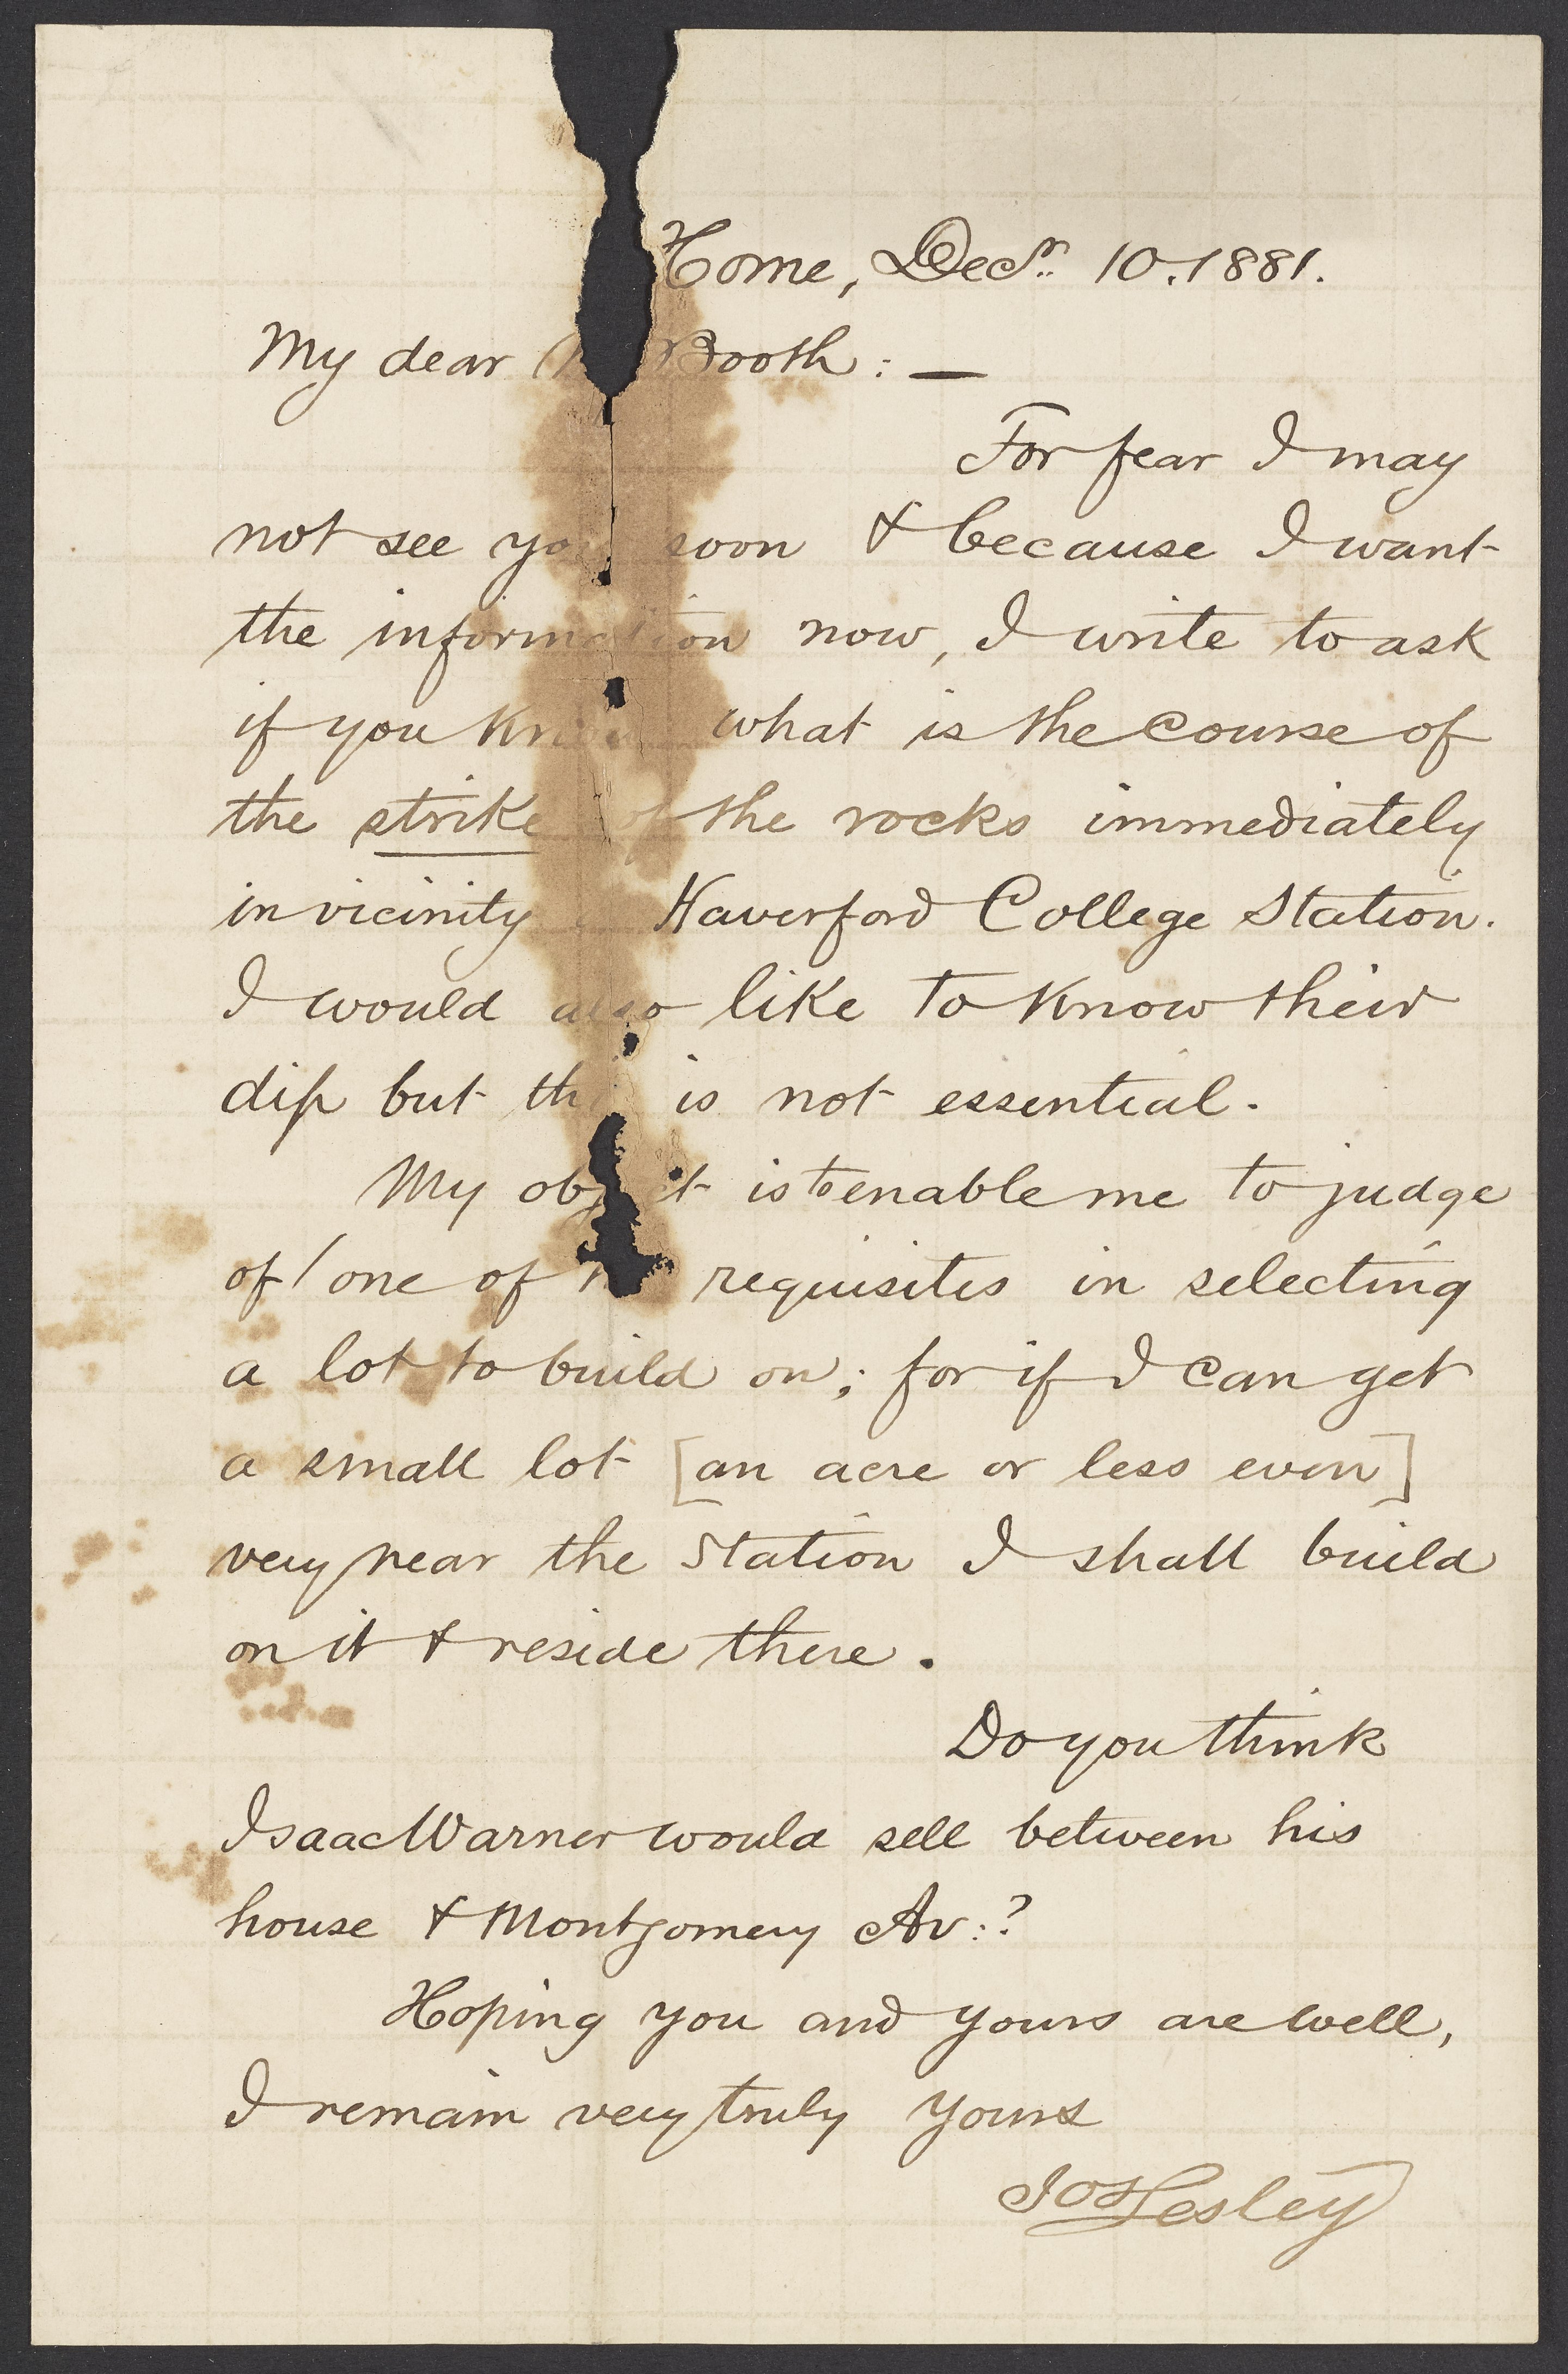 Home, Decr. 10. 1881.
My dear Booth : —
For fear I may
not see you soon & because I want
the information now, I write to ask
if you know what is the course of
the strike of the rocks immediately
in vicinity Haverford College Station.
I would also like to know their
dip but this is not essential.
My object is to enable me to judge
of / one of requisites in selecting
a lot to build on ; for if I can get
a small lot [an acre or less even]
very near the Station I shall build
on it & reside there .
Do you think
Isaac Warner would sell between his
house & Montgomery Av: ?
Hoping you and yours are well,
I remain very truly yours
Jos Lesley